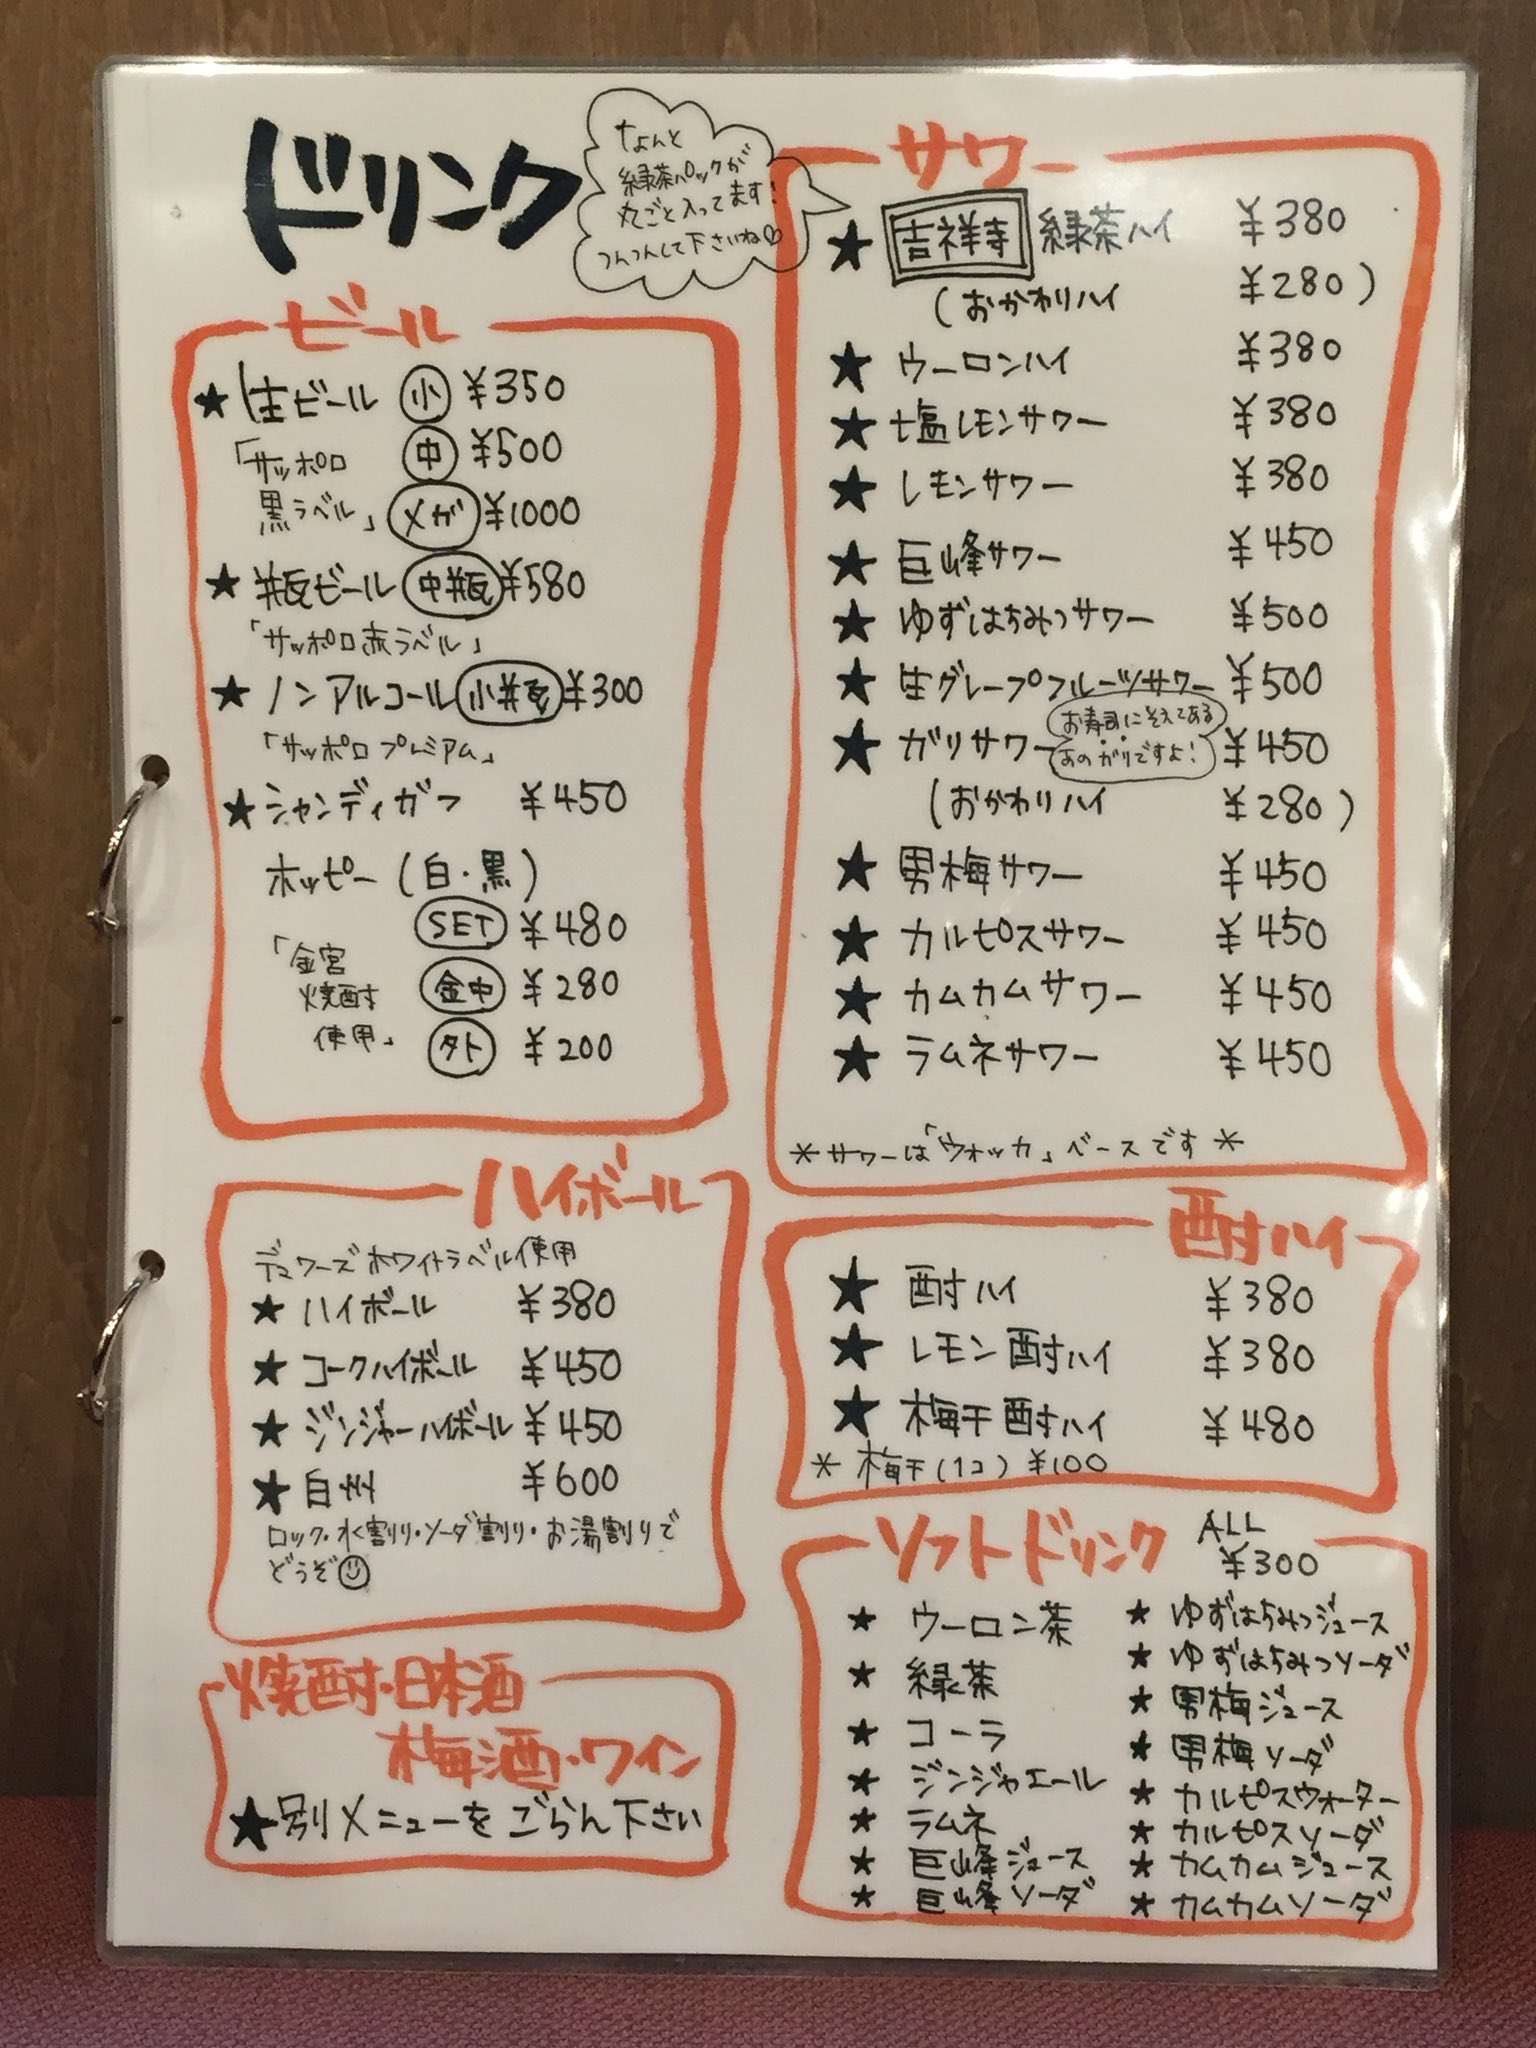 ドリンク
なんと
緑茶パックが
丸ごと入ってます!
つんつんして下さいね♡
ビール
★生ビール 小 ¥350
「サッポロ 中 ¥500
黒ラベル」 メガ ¥1000
★瓶ビール 中瓶 ¥580
「サッポロ赤ラベル」
★ノンアルコール 小瓶 ¥300
「サッポロプレミアム」
★シャンディガフ ¥450
ホッピー(白・黒)
SET ¥480
「金宮
焼酎 金中 ¥280
使用」 外 ¥200
ハイボール
デュワーズホワイトラベル使用
★ハイボール ¥380
★コークハイボール ¥450
★ジンジャーハイボール ¥450
★白州 ¥600
ロック・水割り・ソーダ割り・お湯割りで
どうぞ
焼酎・日本酒
梅酒・ワイン
★別メニューをごらん下さい
サワー
★吉祥寺 緑茶ハイ ¥380
(おかわりハイ ¥280)
★ウーロンハイ ¥380
★塩レモンサワー ¥380
★レモンサワー ¥380
★巨峰サワー ¥450
★ゆずはちみつサワー ¥500
★生グレープフルーツサワー ¥500
お寿司にそえてある
★ガリサワー あのガリですよ! ¥450
(おかわりハイ ¥280)
★男梅サワー ¥450
★カルピスサワー ¥450
★カムカムサワー ¥450
★ラムネサワー ¥450
*サワーは「ウォッカ」ベースです*
酎ハイ
★酎ハイ ¥380
★レモン酎ハイ ¥380
★梅干酎ハイ ¥480
*梅干(1コ) ¥100
ソフトドリンク ALL
¥300
★ウーロン茶
★緑茶
★コーラ
★ジンジャエール
★ラムネ
★巨峰ジュース
★巨峰ソーダ
★ゆずはちみつジュース
★ゆずはちみつソーダ
★男梅ジュース
★男梅ソーダ
★カルピスウォーター
★カルピスソーダ
★カムカムジュース
★カムカムソーダ